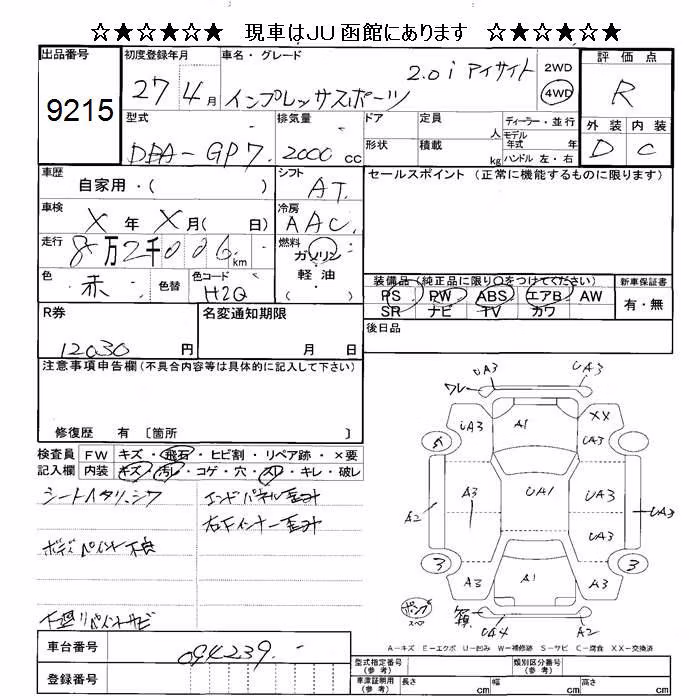 ☆★☆★☆★ 現車はJU函館にあります ☆★☆★☆★
出品番号 初度登録年月 車名・グレード 評価点
9215 27 4月 インプレッサスポーツ 2.0i アイサイト 2WD 4WD R
外装 内装
D C
型式 排気量 ドア 定員 人 ディーラー・並行
DBA-GP7 2000cc 形状 積載 kg モデル年式 年
ハンドル 左・右
車歴 シフト セールスポイント (正常に機能するものに限ります)
自家用・( ) AT
車検 冷房
X年X月( 日) AAC
走行 燃料
8万2千006km ガソリン
軽・油
( )
色 色替 色コード
赤 H2Q
装備品(純正品に限り○をつけてください) 新車保証書
PS PW ABS エアB AW 有・無
SR ナビ TV カワ
R券 名変通知期限 後日品
12030円 月 日
注意事項申告欄 (不具合内容等は具体的に記入して下さい)
修復歴 有 〔箇所 〕
検査員 FW キズ・飛石・ヒビ割・リペア跡・×要
記入欄 内装 キズ・汚レ・コゲ・穴・スレ・キレ・破レ
シートヘタリ、シワ エンドパネル歪み
右下インナー歪み
ボディペイント不良
下廻りペイントサビ
UA3 UA3
ワレ
UA3 A1 XX
6
A3 UA1 UA3
A2 UA3 UA3
3 3
A3 A1 A3
UA4 A2
A-キズ E-エクボ U-凹み W-補修跡 S-サビ C-腐食 XX-交換済
車台番号 094239
登録番号
型式指定番号(参考) 類別区分番号(参考)
車庫証明用(参考) 長さ cm 幅 cm 高さ cm